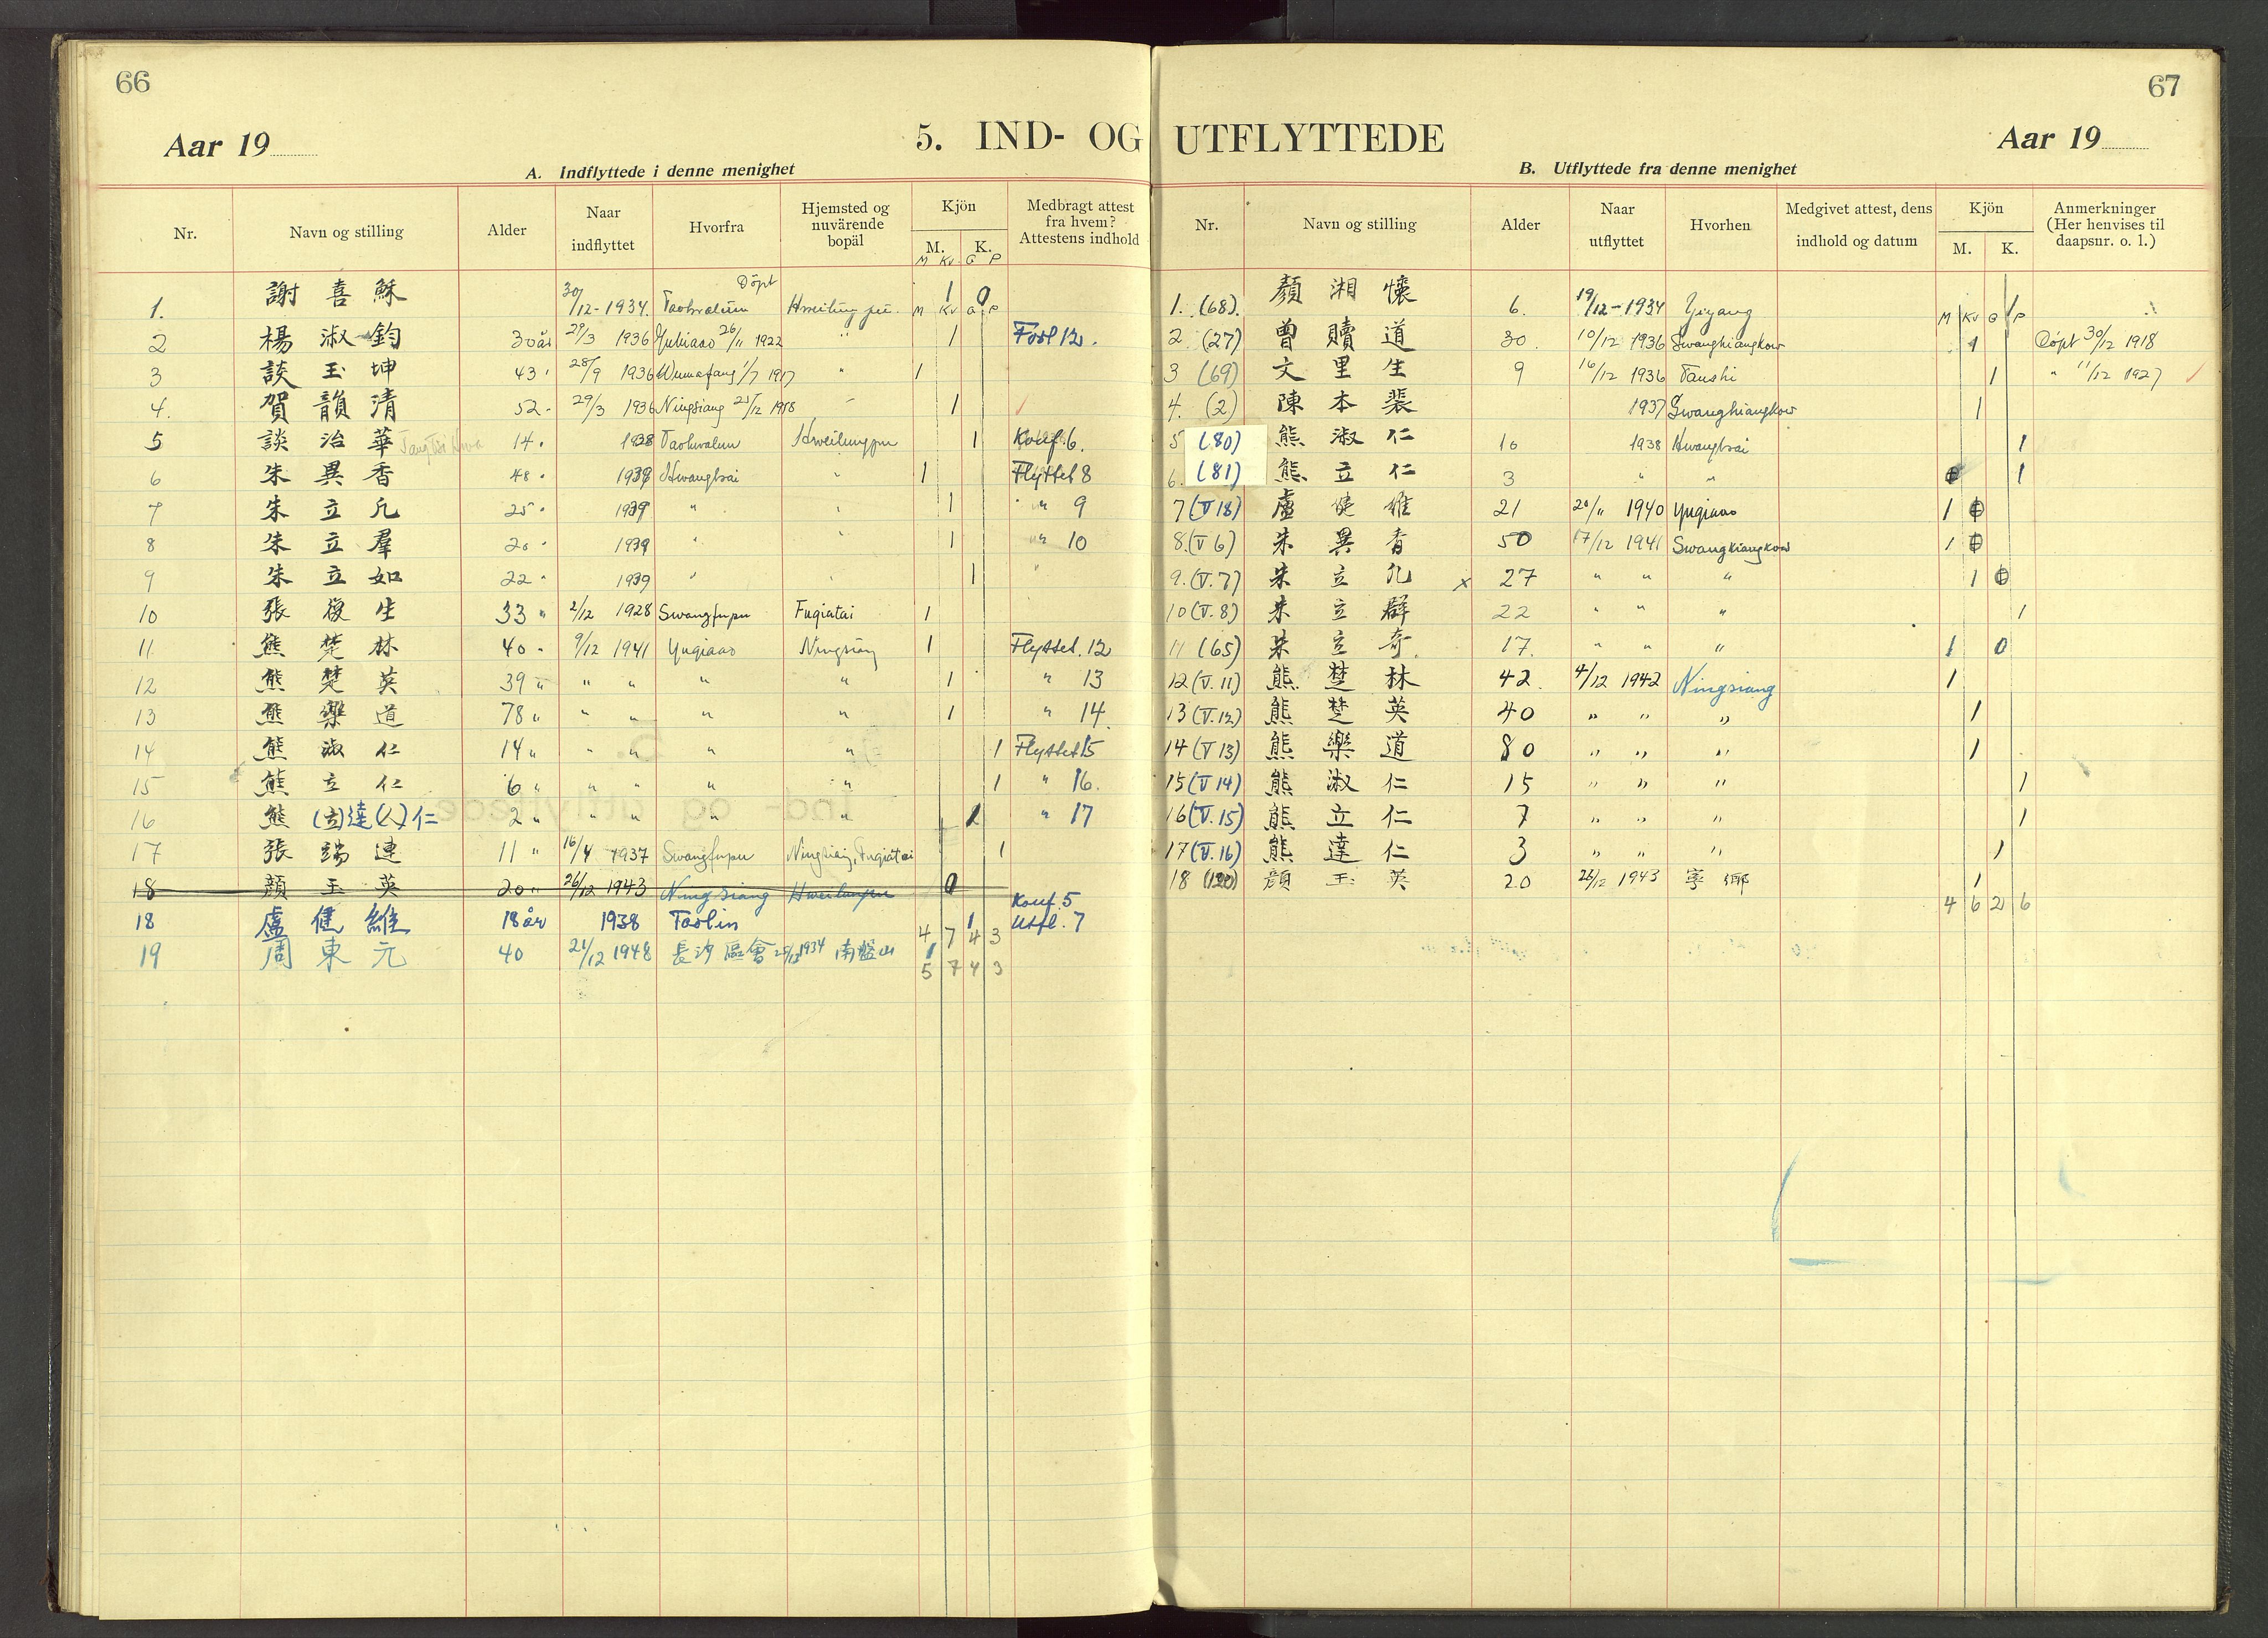 66
Aar 19
5. IND- OG
A. Indflyttede i denne menighet
Nr. Navn og stilling Alder Naar indflyttet Hvorfra Hjemsted og nuværende bopäl Kjön M. K. Medbragt attest fra hvem? Attestens indhold
M Kv G P
Döpt
1. 謝喜穌 30/12-1934. Taohvalün Hweilungpu. M Kv G P 1 0
2 楊淑鈞 30 år 29/3 1936 26/11 1922 " 1 12.
3 談玉坤 43 " 28/9 1936 Wumafang 1/7 1917 " 1
4. 賀韻清 52 " 29/3 1936 Ningsiang " 1
5 談治華 14 " 1938 Taohwalun Hweilungpu 1 Konf. 6.
6 朱異香 48 " 1939 Hwangtsai " 1 Flyttet 8
7 朱立凡 25 " 1939 " " 1 " 9
8 朱立羣 20 " 1939 " " 1 " 10
9 朱立如 22 " 1939 " " 1 "
10 張復生 33 " 2/12 1928 Swangfupu Fugiatai 1
11 熊楚林 40 " 9/12 1941 Yugiaao Ningsiang 1 Flyttet. 12
12 熊楚英 39 " " " " " 1 " 13
13 熊樂道 78 " " " " " 1 " 14
14 熊淑仁 14 " " " " " 1 Flyttet 15
15 熊立仁 6 " " " " " 1 " 16.
16 熊(立)達(人)仁 2 " " " " " 1 " 17
17 張端連 11 " 16/4 1937 Swangfupu Ningsiang, Fugiatai 1
18 顔玉英 20 " 26/12 1943 Ningsiang Hweilungpu 0
18 盧健維 18 år 1938 Taolin 1 Konf. 5 Utfl. 7
4 7 4 3
19 周東元 40 21/12 1948 長沙區會 25/12 1934 南盤山 1
5 7 4 3
67
UTFLYTTEDE
Aar 19
B. Utflyttede fra denne menighet
Nr. Navn og stilling Alder Naar utflyttet Hvorhen Medgivet attest, dens indhold og datum Kjön M. K. Anmerkninger (Her henvises til daapsnr. o. l.)
1. (68). 顏湘懷 6. 19/12-1934 Yiyang M Kv G P 1
2 (27) 曾贖道 30. 10/12 1936 Swanghiangkow 1 Döpt 30/12 1918
3 (69) 文里生 9 16/12 1936 Taushi 1 " 11/12 1927
4. (2) 陳本裴 1937 Swanghiangkow 1
5 (80) 熊淑仁 10 1938 Hwangtsai 1
6. (81) 熊立仁 3 " " 1
7 (V 18) 盧健維 21 20/11 1940 Yugiaao 1
8. (V 6) 朱異香 50 17/12 1941 Swangkiangkow 1
9. (V. 7) 朱立凡 x 27 " " " 1
10 (V. 8) 朱立群 22 " " " 1
11 (65) 朱立奇 17. " " " 1 0
12 (V. 11) 熊楚林 42. 4/12 1942 Ningsiang 1
13 (V. 12) 熊楚英 40 " " " 1
14 (V 13) 熊樂道 80 " " " 1
15 (V 14) 熊淑仁 15 " " " 1
16 (V. 15) 熊立仁 7 " " " 1
17 (V. 16) 熊達仁 3 " " " 1
18 (120) 顔玉英 20 26/12 1943 寧鄉 1
4 6 2 6